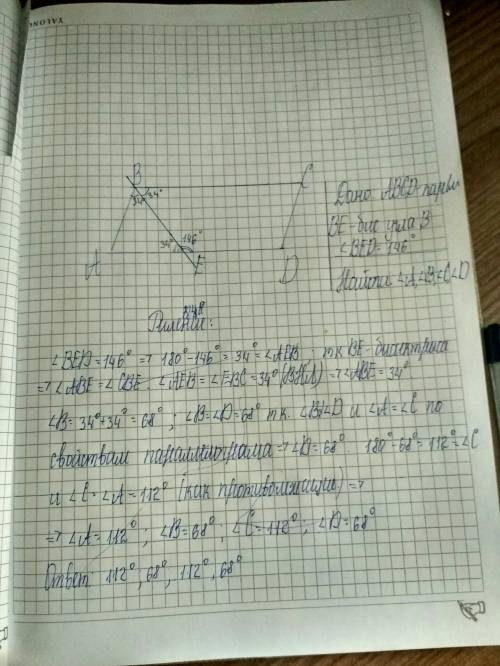 YALONG
B
C
34° 34°
Дано: ABCD-парал
BE-бис угла B
∠BED=146°
34° 146°
A
E
D
Найти: ∠A,∠B,∠C,∠D
Решение:
∠BED=146° => 180°-146°= 34°=∠AEB ; тк BE-биссектриса
=> ∠ABE=∠CBE ∠AEB=∠EBC=34° (ВНЛ) =>∠ABE=34°
∠B= 34°+34°=68° ; ∠B=∠D=68° тк. ∠B∠D и ∠A=∠C по
свойствам параллелограма => ∠D=68° 180°-68°=112°=∠C
и ∠C=∠A=112° (как противолжащии) =>
=> ∠A=112° ; ∠B=68° , ∠C=112° ; ∠D=68°
Ответ: 112° , 68° , 112° , 68°